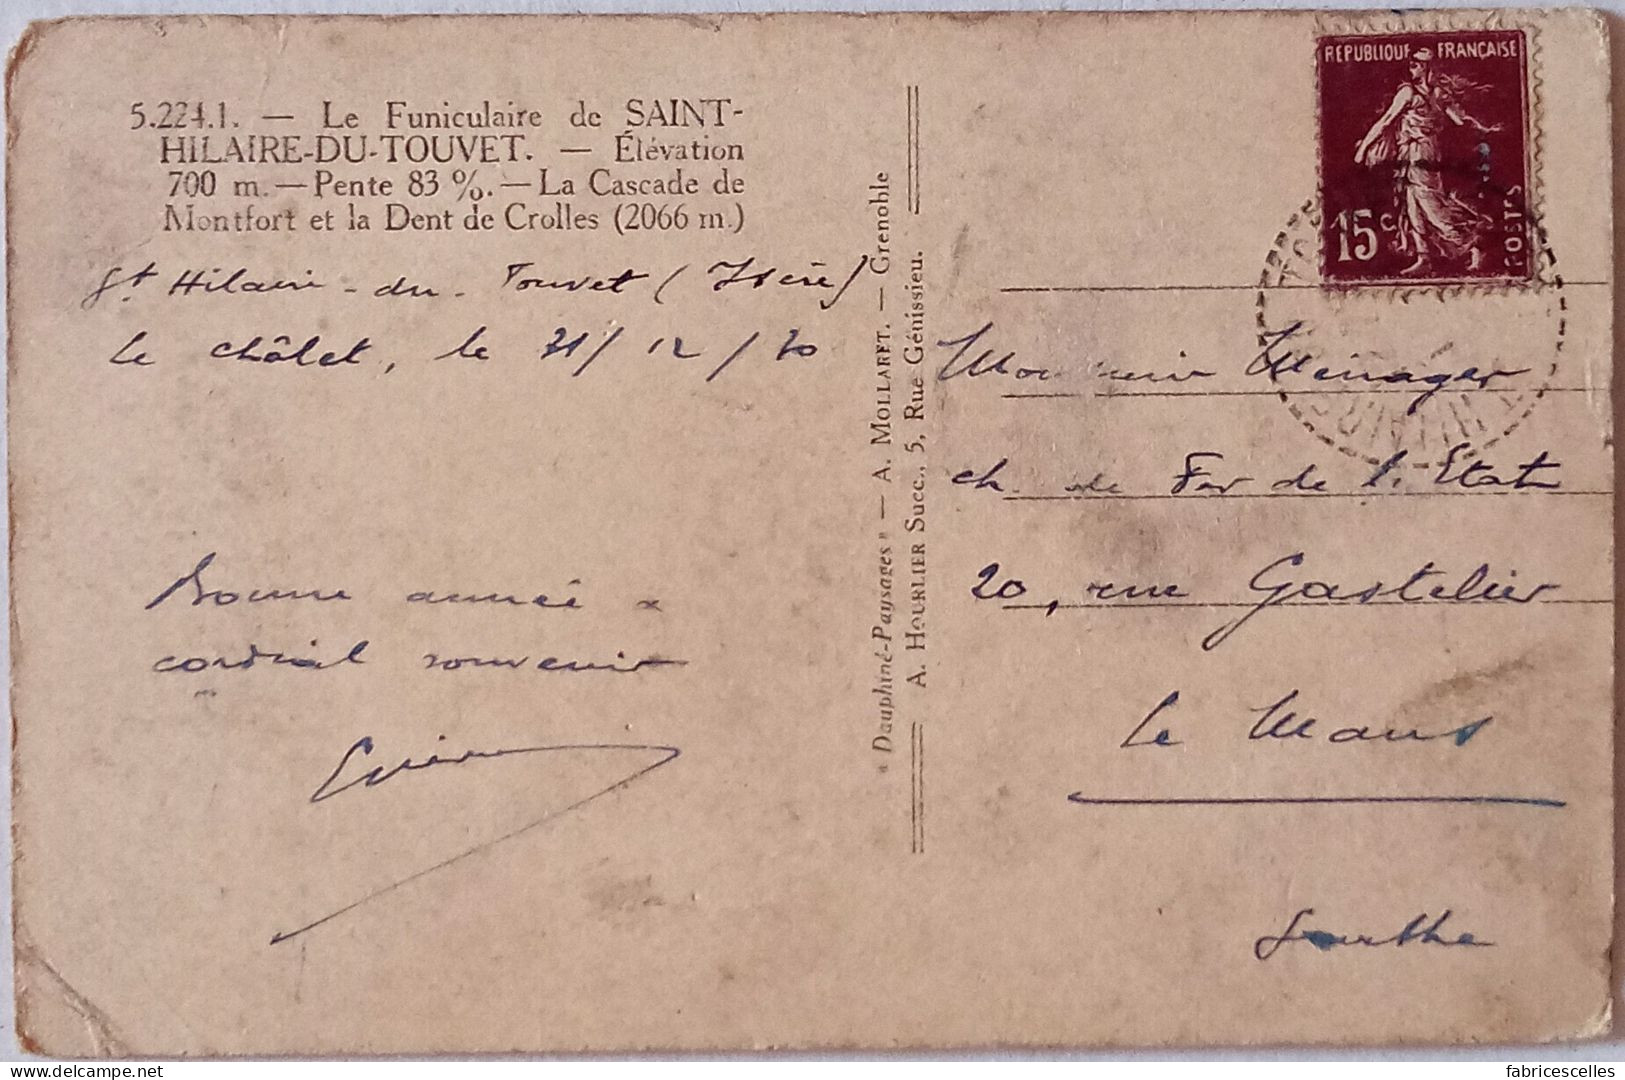 5.224.1. — Le Funiculaire de SAINT-
HILAIRE-DU-TOUVET. — Élévation
700 m. — Pente 83 %. — La Cascade de
Montfort et la Dent de Crolles (2066 m.)
St Hilaire - du - Touvet (Isère)
Le châlet, le 31/12/30
Bonne année &
cordial souvenir
« Dauphiné-Paysages » — A. MOLLARET. — Grenoble
A. HOURLIER Succ., 5, Rue Génissieu.
REPUBLIQUE FRANÇAISE
15c
POSTES
Monsieur Ménager
ch. de Fer de l'Etat
20, rue Gastelier
Le Mans
Sarthe
delcampe.net
fabricescelles